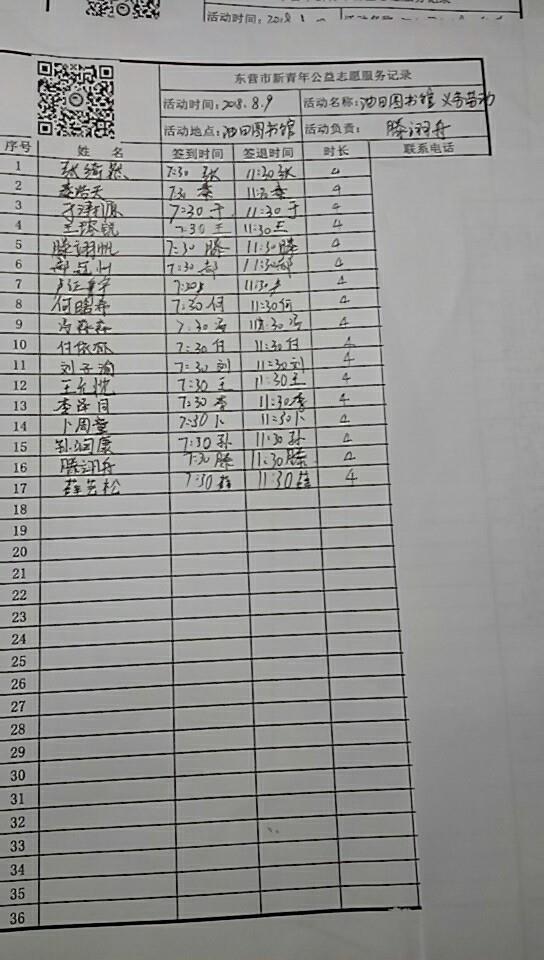 活动时间：2018
东营市新青年公益志愿服务记录
活动时间：2018.8.9 活动名称：油田图书馆 义务劳动
活动地点：油田图书馆 活动负责：滕翊舟
序号 姓 名 签到时间 签退时间 时长 联系电话
1 张绮然 7:30 张 11:30 张 4
2 秦浩天 7:30 秦 11:30 秦 4
3 于泽源 7:30 于 11:30 于 4
4 王 7:30 王 11:30 王 4
5 滕翊帆 7:30 滕 11:30 滕 4
6 7:30 郝 11:30 郝 4
7 7:30 11:30 4
8 何曙 7:30 何 11:30 何 4
9 冯森森 7:30 冯 11:30 冯 4
10 付依 7:30 付 11:30 付 4
11 刘子瑜 7:30 刘 11:30 刘 4
12 王允忱 7:30 王 11:30 王 4
13 李泽同 7:30 李 11:30 李 4
14 卜周童 7:30 卜 11:30 卜 4
15 孙润康 7:30 孙 11:30 孙 4
16 滕翊舟 7:30 滕 11:30 滕 4
17 薛茗松 7:30 薛 11:30 薛 4
18
19
20
21
22
23
24
25
26
27
28
29
30
31
32
33
34
35
36